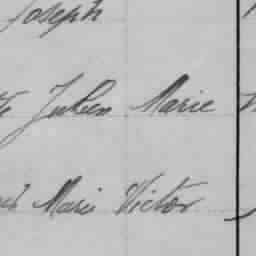 Joseph
Julien Marie
Marie Victor